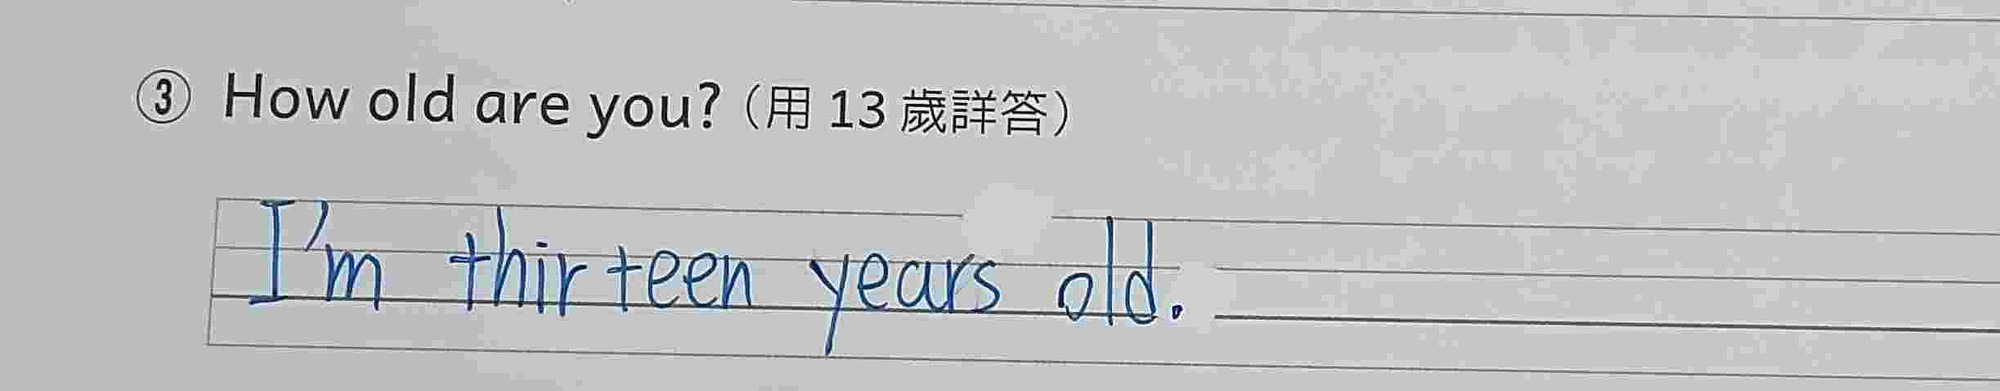 ③ How old are you?（用 13 歲詳答）
I'm thirteen years old.